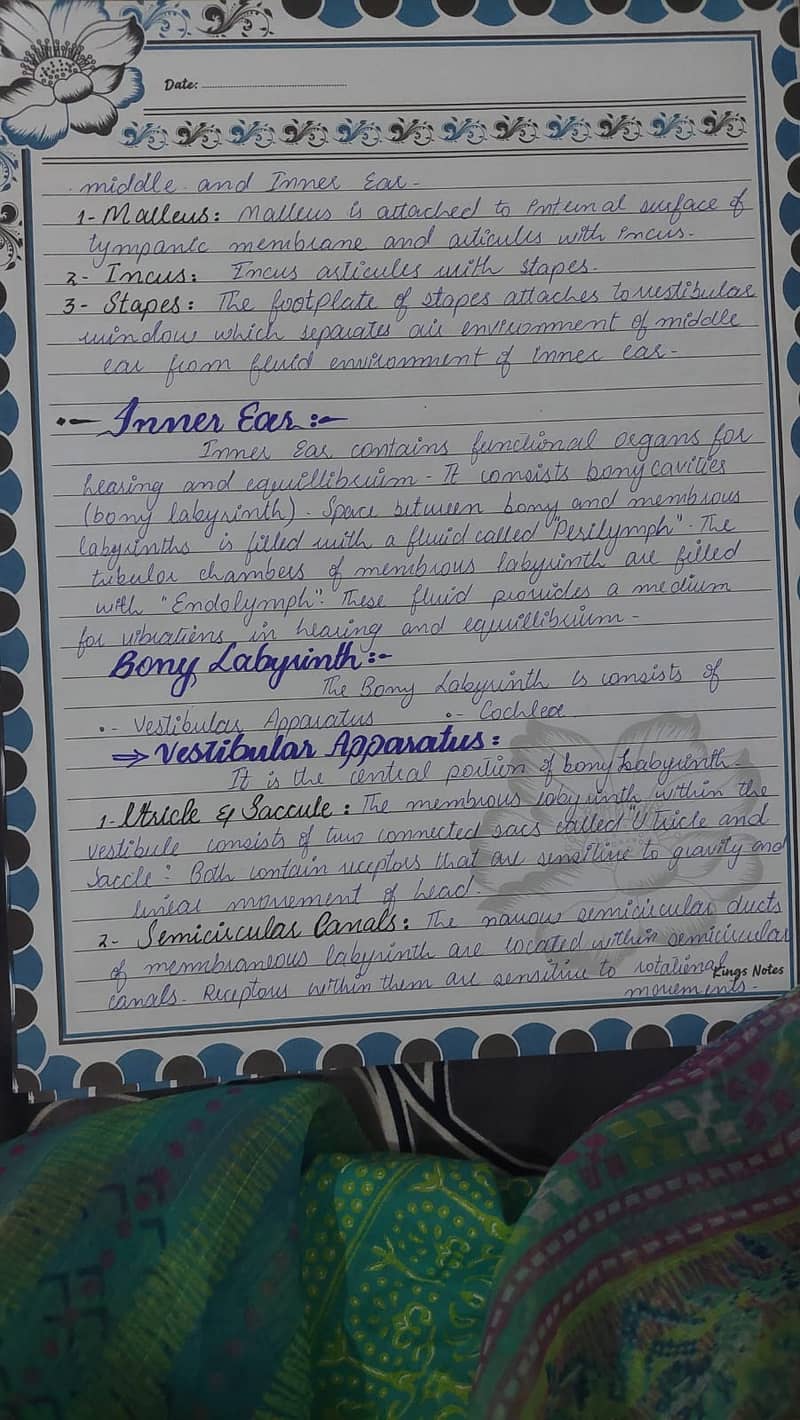 Date:
middle and Inner Ear-
1- Malleus: Malleus is attached to internal surface of
tympanic membrane and articules with incus.
2- Incus: Incus articules with stapes.
3- Stapes: The footplate of stapes attaches to vestibular
window which separates air environment of middle
ear from fluid environment of inner ear-
•- Inner Ear:-
Inner Ear contains functional organs for
hearing and equillibrium- It consists bony cavities
(bony labyrinth). Space between bony and membrous
labyrinths is filled with a fluid called "Perilymph". The
tubular chambers of membrous labyrinth are filled
with "Endolymph". These fluid provides a medium
for vibrations in hearing and equillibrium-
Bony Labyrinth:-
The Bony Labyrinth is consists of
•- Vestibular Apparatus •- Cochlea
⇒ Vestibular Apparatus:
It is the central portion of bony Labyrinth.
1- Utricle & Saccule: The membrous labyrinth within the
vestibule consists of two connected sacs called "Utricle and
Saccle". Both contain receptors that are sensitive to gravity and
linear movement of head.
2- Semicircular Canals: The narrow semicircular ducts
of membraneous labyrinth are located within semicircular
canals. Receptors within them are sensitive to rotational
movements.
Kings Notes